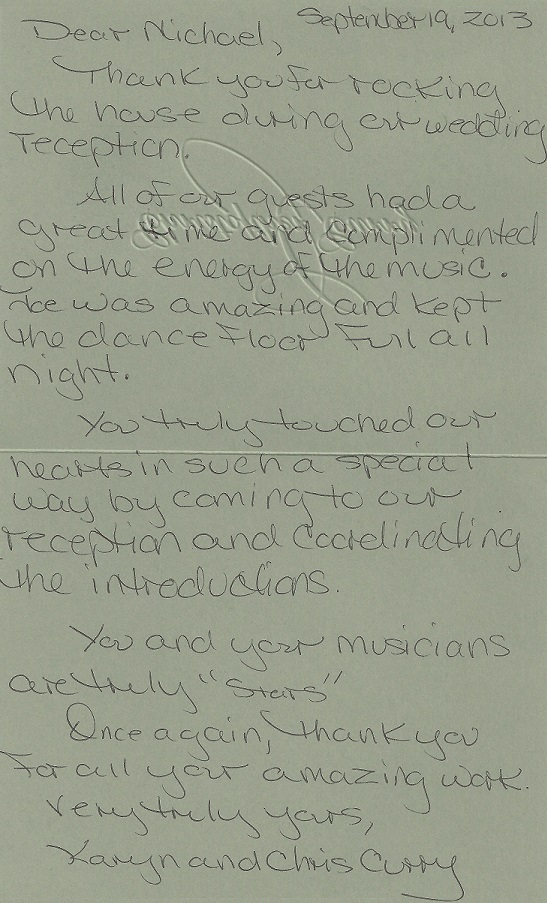 September 19, 2013
Dear Michael,
Thank you for rocking
the house during our wedding
reception.
All of our guests had a
great time and complimented
on the energy of the music.
Ice was amazing and kept
the dance floor full all
night.
You truly touched our
hearts in such a special
way by coming to our
reception and coordinating
the introductions.
You and your musicians
are truly "Stars"
Once again, thank you
for all your amazing work.
Very truly yours,
Karyn and Chris Curry